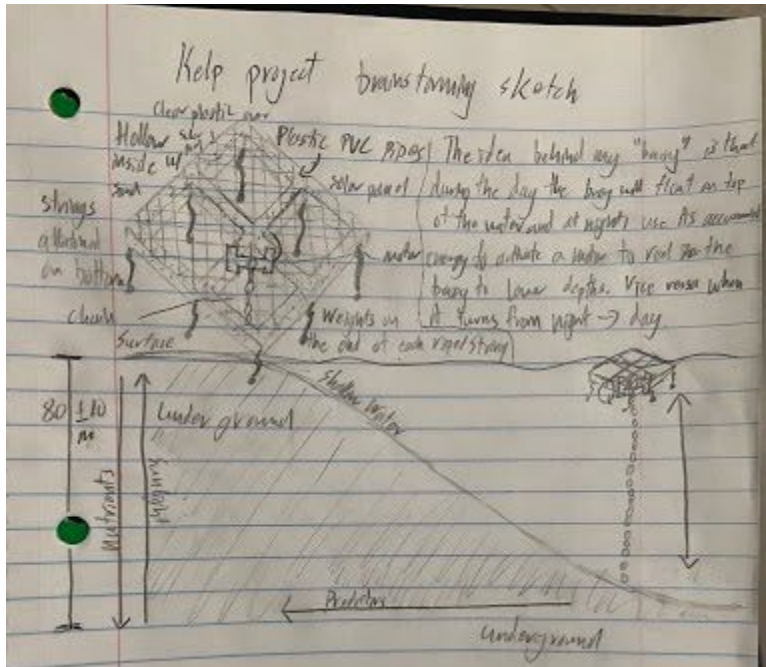 Kelp project brainstorming sketch
Clear plastic over
Hollow
inside w/
Plastic PVC pipes
solar panel
strings
attached
on bottom
motor
Weights on
the end of each rope/string
The idea behind my "buoy" is that
during the day the buoy will float on top
of the water and at night, use its
energy to activate a motor to reel the
buoy to lower depths. Vice versa when
it turns from night → day.
Surface
Shallow water
80 ± 10
m
Nutrients
Sunlight
Underground
Predators
Underground